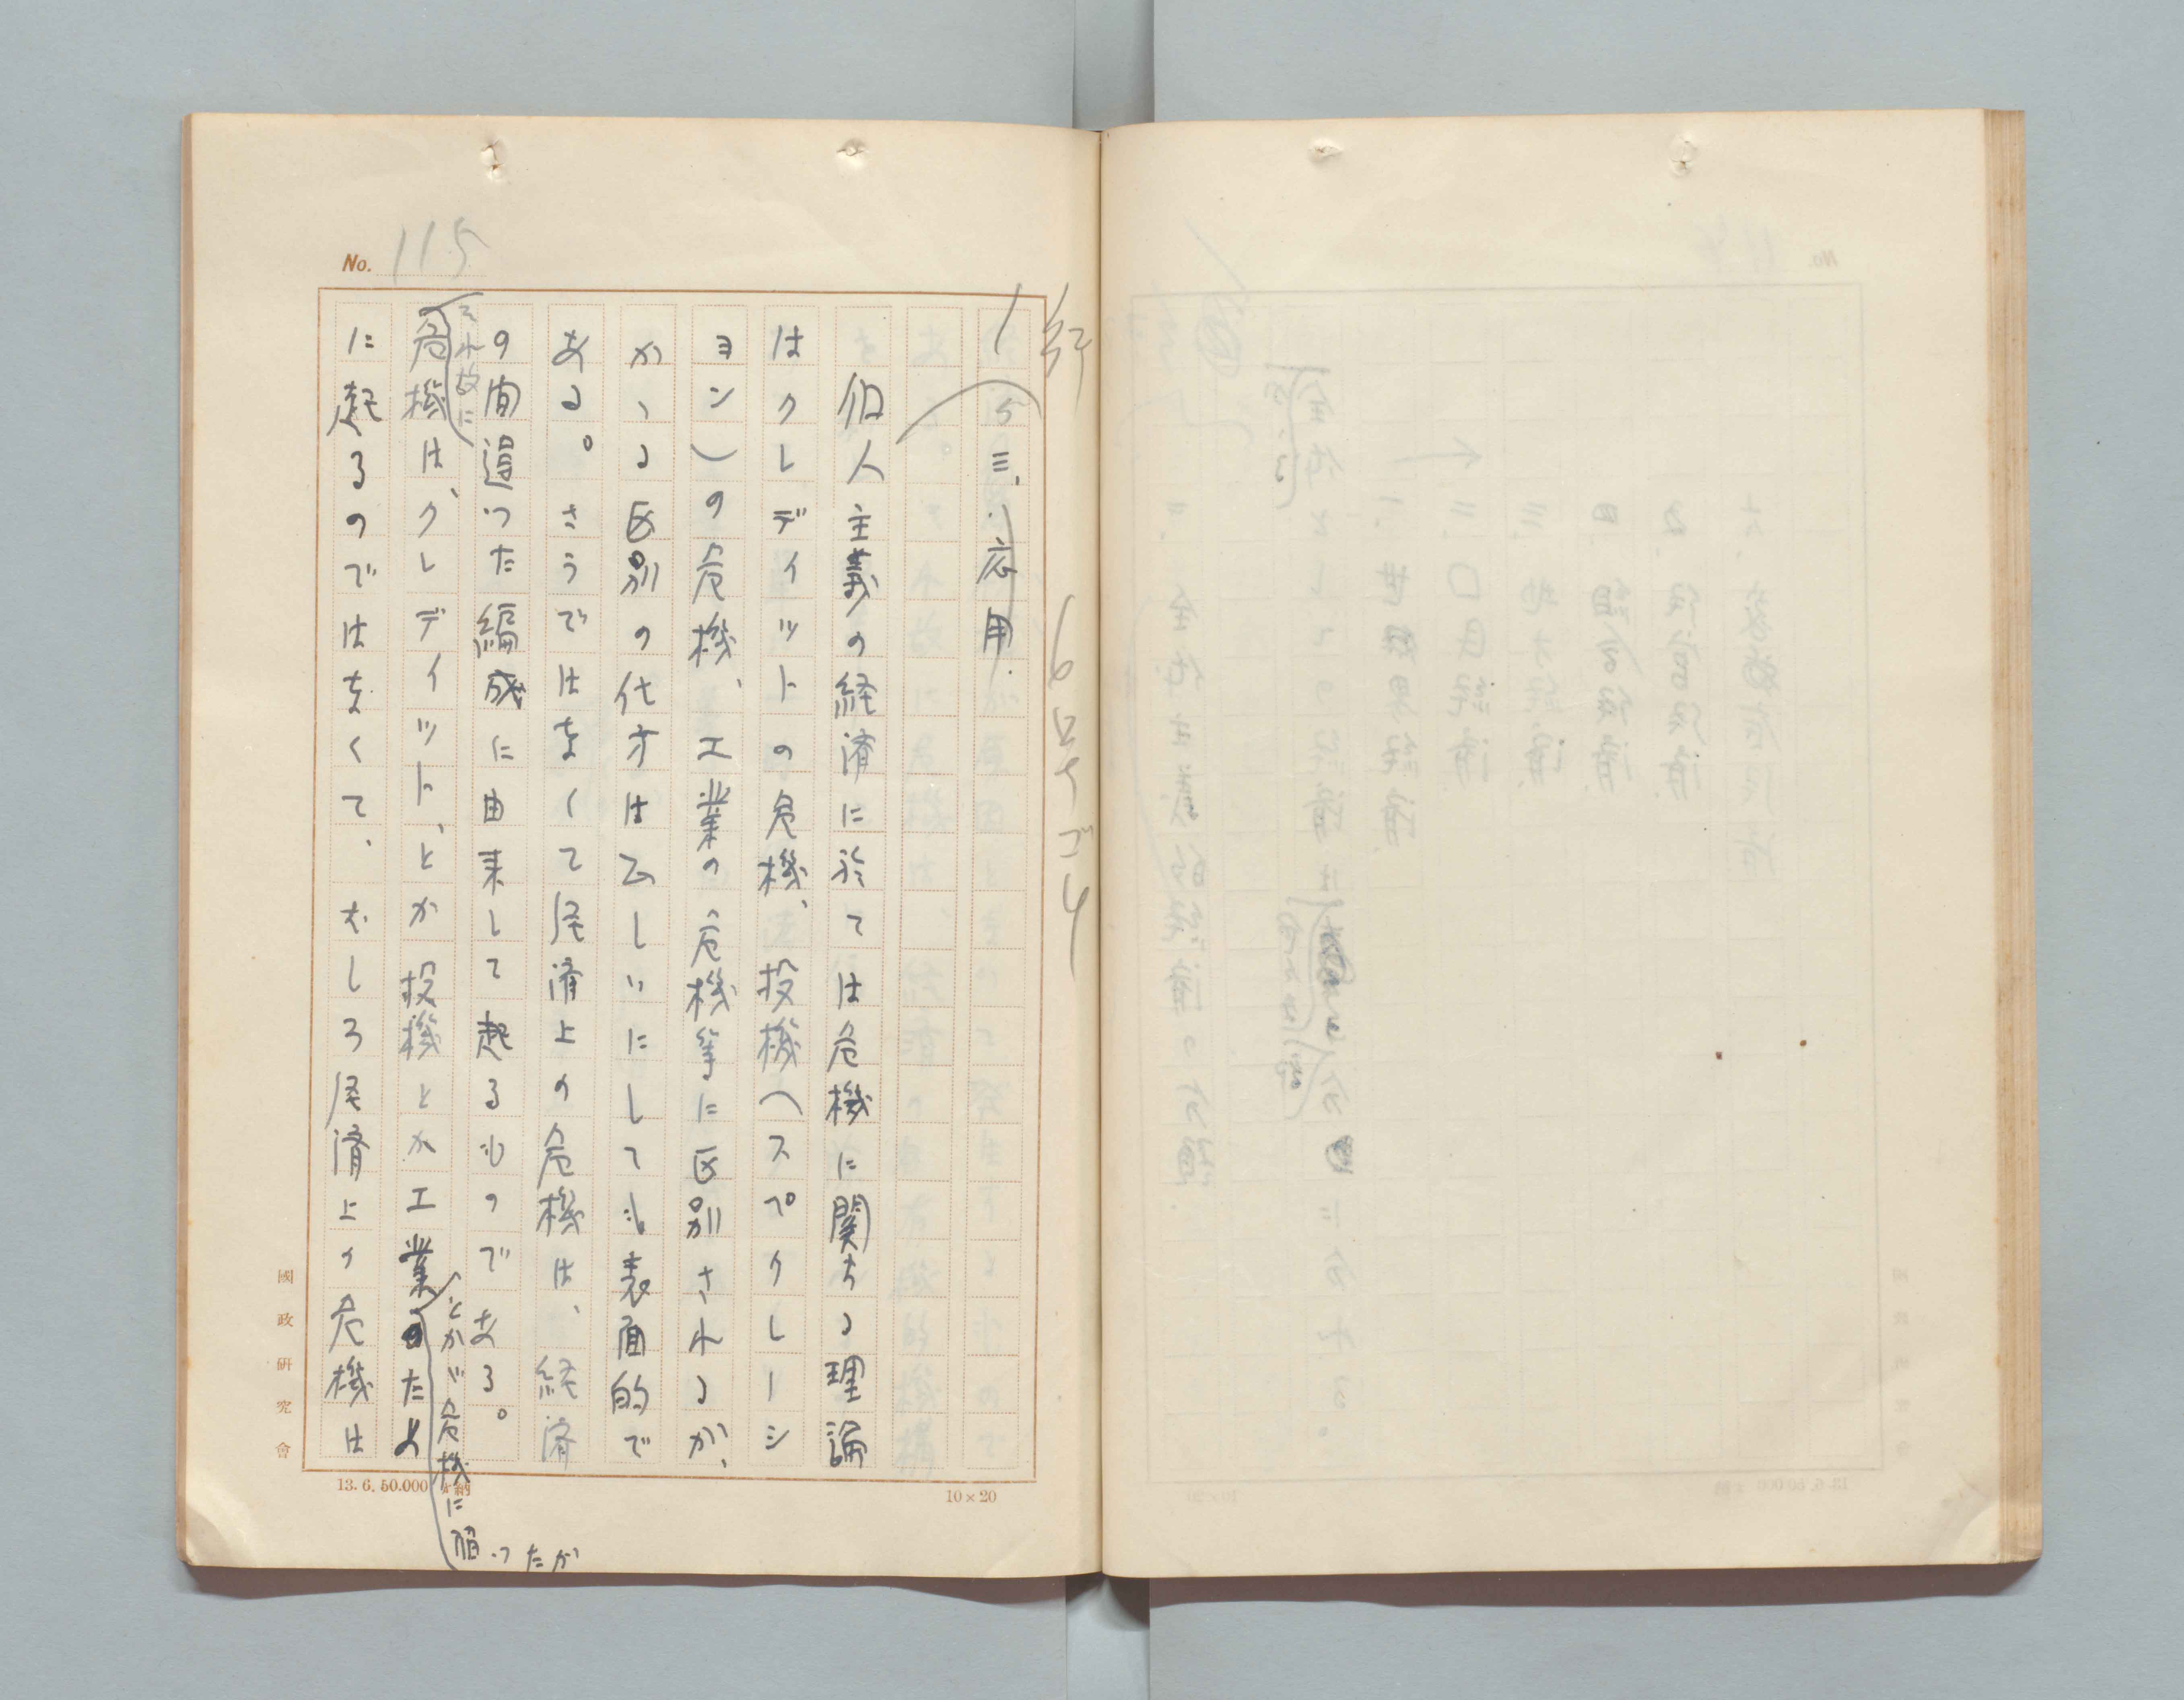 No. 115
1行
6号ゴチ
5 三、応用.
個人主義の経済に於ては危機に関する理論
はクレディットの危機、投機(スペクレーシ
ョン)の危機、工業の危機等に区別されるが、
かゝる区別の仕方は正しいにしても表面的で
ある。さうではなくて経済上の危機は、経済
の間違つた編成に由来して起るものである。
それ故に
危機は、クレディット、とか投機とか工業
とかゞ危機に陥つたが
ために起るのではなくて、むしろ経済上の危機は
國政研究會
13. 6. 50.000
10×20